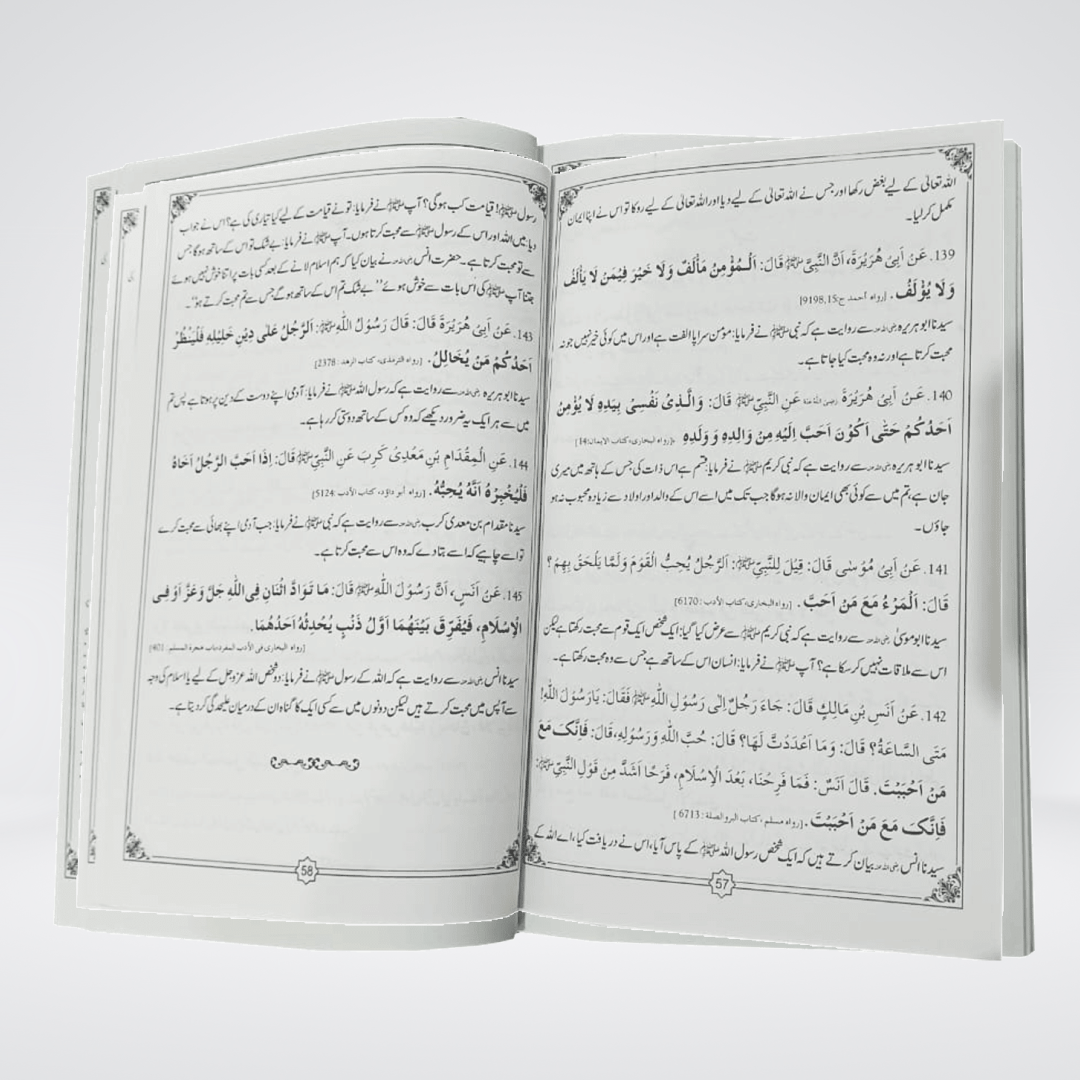 اللہ تعالیٰ کے لیے بغض رکھا اور جس نے اللہ تعالیٰ کے لیے دیا اور اللہ تعالیٰ کے لیے روکا تو اس نے اپنا ایمان
مکمل کر لیا۔
139. عَنْ أَبِىْ هُرَيْرَةَ، أَنَّ النَّبِىَّ ﷺ قَالَ: اَلْمُؤْمِنُ مَأْلَفٌ وَلَا خَيْرَ فِيْمَنْ لَا يَأْلَفُ
وَلَا يُؤْلَفُ. [رواه احمد ح:9198,15]
سیدنا ابو ہریرہ رضی اللہ عنہ سے روایت ہے کہ نبی ﷺ نے فرمایا: مومن سراپا الفت ہے اور اس میں کوئی خیر نہیں جو نہ
محبت کرتا ہے اور نہ وہ محبت کیا جاتا ہے۔
140. عَنْ أَبِىْ هُرَيْرَةَ رضی اللہ عنہ عَنِ النَّبِىِّ ﷺ قَالَ: وَالَّذِىْ نَفْسِىْ بِيَدِهِ لَا يُؤْمِنُ
اَحَدُكُمْ حَتّٰى اَكُوْنَ اَحَبَّ اِلَيْهِ مِنْ وَالِدِهِ وَوَلَدِهِ. [رواه البخارى، كتاب الايمان:14]
سیدنا ابو ہریرہ رضی اللہ عنہ سے روایت ہے کہ نبی کریم ﷺ نے فرمایا: قسم ہے اس ذات کی جس کے ہاتھ میں میری
جان ہے، تم میں سے کوئی بھی ایمان والا نہ ہوگا جب تک میں اسے اس کے والد اور اولاد سے زیادہ محبوب نہ ہو
جاؤں۔
141. عَنْ أَبِىْ مُوْسٰى قَالَ: قِيْلَ لِلنَّبِىِّ ﷺ: اَلرَّجُلُ يُحِبُّ الْقَوْمَ وَلَمَّا يَلْحَقْ بِهِمْ؟
قَالَ: اَلْمَرْءُ مَعَ مَنْ اَحَبَّ. [رواه البخارى، كتاب الأدب:6170]
سیدنا ابو موسیٰ رضی اللہ عنہ سے روایت ہے کہ نبی کریم ﷺ سے عرض کیا گیا: ایک شخص ایک قوم سے محبت رکھتا ہے لیکن
اس سے ملاقات نہیں کر سکا ہے؟ آپ ﷺ نے فرمایا: انسان اس کے ساتھ ہے جس سے وہ محبت رکھتا ہے۔
142. عَنْ أَنَسِ بْنِ مَالِكٍ قَالَ: جَاءَ رَجُلٌ اِلٰى رَسُوْلِ اللّٰهِ ﷺ فَقَالَ: يَارَسُوْلَ اللّٰهِ!
مَتَى السَّاعَةُ؟ قَالَ: وَمَا اَعْدَدْتَّ لَهَا؟ قَالَ: حُبَّ اللّٰهِ وَرَسُوْلِهِ، قَالَ: فَإِنَّكَ مَعَ
مَنْ اَحْبَبْتَ. قَالَ اَنَسٌ: فَمَا فَرِحْنَا، بَعْدَ الْاِسْلَامِ، فَرَحًا اَشَدَّ مِنْ قَوْلِ النَّبِىِّ ﷺ:
فَاِنَّكَ مَعَ مَنْ اَحْبَبْتَ. [رواه مسلم، كتاب البر والصلة:6713]
سیدنا انس رضی اللہ عنہ بیان کرتے ہیں کہ ایک شخص رسول اللہ ﷺ کے پاس آیا، اس نے دریافت کیا، اے اللہ کے
57
رسول ﷺ! قیامت کب ہوگی؟ آپ ﷺ نے فرمایا: تو نے قیامت کے لیے کیا تیاری کی ہے؟ اس نے جواب
دیا: میں اللہ اور اس کے رسول ﷺ سے محبت کرتا ہوں۔ آپ ﷺ نے فرمایا: بے شک تو اس کے ساتھ ہوگا جس
سے تو محبت کرتا ہے۔ حضرت انس رضی اللہ عنہ نے بیان کیا کہ ہم اسلام لانے کے بعد کسی بات پر اتنا خوش نہیں ہوئے
جتنا آپ ﷺ کی اس بات سے خوش ہوئے "بے شک تم اس کے ساتھ ہو گے جس سے تم محبت کرتے ہو"۔
143. عَنْ اَبِىْ هُرَيْرَةَ قَالَ: قَالَ رَسُوْلُ اللّٰهِ ﷺ: اَلرَّجُلُ عَلٰى دِيْنِ خَلِيْلِهِ فَلْيَنْظُرْ
اَحَدُكُمْ مَنْ يُخَالِلُ. [رواه الترمذى، كتاب الزهد:2378]
سیدنا ابو ہریرہ رضی اللہ عنہ سے روایت ہے کہ رسول اللہ ﷺ نے فرمایا: آدمی اپنے دوست کے دین پر ہوتا ہے پس تم
میں سے ہر ایک یہ ضرور دیکھے کہ وہ کس کے ساتھ دوستی کر رہا ہے۔
144. عَنِ الْمِقْدَامِ بْنِ مَعْدِىْ كَرِبَ عَنِ النَّبِىِّ ﷺ قَالَ: اِذَا اَحَبَّ الرَّجُلُ اَخَاهُ
فَلْيُخْبِرْهُ اَنَّهُ يُحِبُّهُ. [رواه أبو داؤد، كتاب الأدب:5124]
سیدنا مقدام بن معدی کرب رضی اللہ عنہ سے روایت ہے کہ نبی ﷺ نے فرمایا: جب آدمی اپنے بھائی سے محبت کرے
تو اسے چاہیے کہ اسے بتا دے کہ وہ اس سے محبت کرتا ہے۔
145. عَنْ اَنَسٍ، اَنَّ رَسُوْلَ اللّٰهِ ﷺ قَالَ: مَا تَوَادَّ اثْنَانِ فِى اللّٰهِ جَلَّ وَعَزَّ اَوْ فِى
الْاِسْلَامِ، فَيُفَرَّقَ بَيْنَهُمَا اَوَّلُ ذَنْبٍ يُحْدِثُهُ اَحَدُهُمَا.
[رواه البخارى فى الأدب المفرد، باب هجرة المسلم:401]
سیدنا انس رضی اللہ عنہ سے روایت ہے کہ اللہ کے رسول ﷺ نے فرمایا: دو شخص اللہ عزوجل کے لیے یا اسلام کی وجہ
سے آپس میں محبت کرتے ہیں لیکن دونوں میں سے کسی ایک کا گناہ ان کے درمیان علیحدگی کر دیتا ہے۔
58